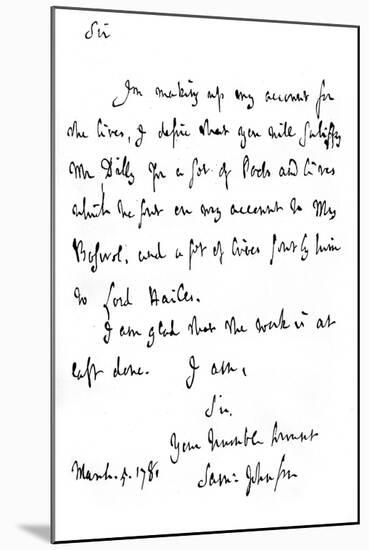 Sir
In making up my account for
the lives, I desire that you will satisfy
Mr Dilly for a set of Poets and lives
which he sent on my account to Mrs
Boswel, and a set of lives sent by him
to Lord Hailes.
I am glad that the work is at
last done. I am,
Sir,
Your humble servant
Sam: Johnson
March. 5. 1781